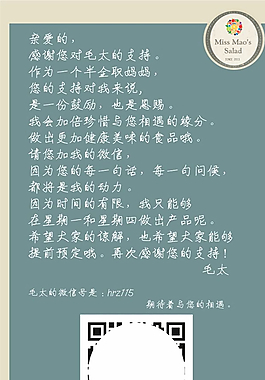 Miss Mao's
Salad
亲爱的，
感谢您对毛太的支持。
作为一个半全职妈妈，
您的支持对我来说，
是一份鼓励，也是恩赐。
我会加倍珍惜与您相遇的缘分。
做出更加健康美味的食品哦。
请您加我的微信，
因为您的每一句话，每一句问侯，
都将是我的动力。
因为时间的有限，我只能够
在星期一和星期四做出产品呢。
希望大家的谅解，也希望大家能够
提前预定哦。再次感谢您的支持！
毛太
毛太的微信号是：hrz115
期待着与您的相遇。